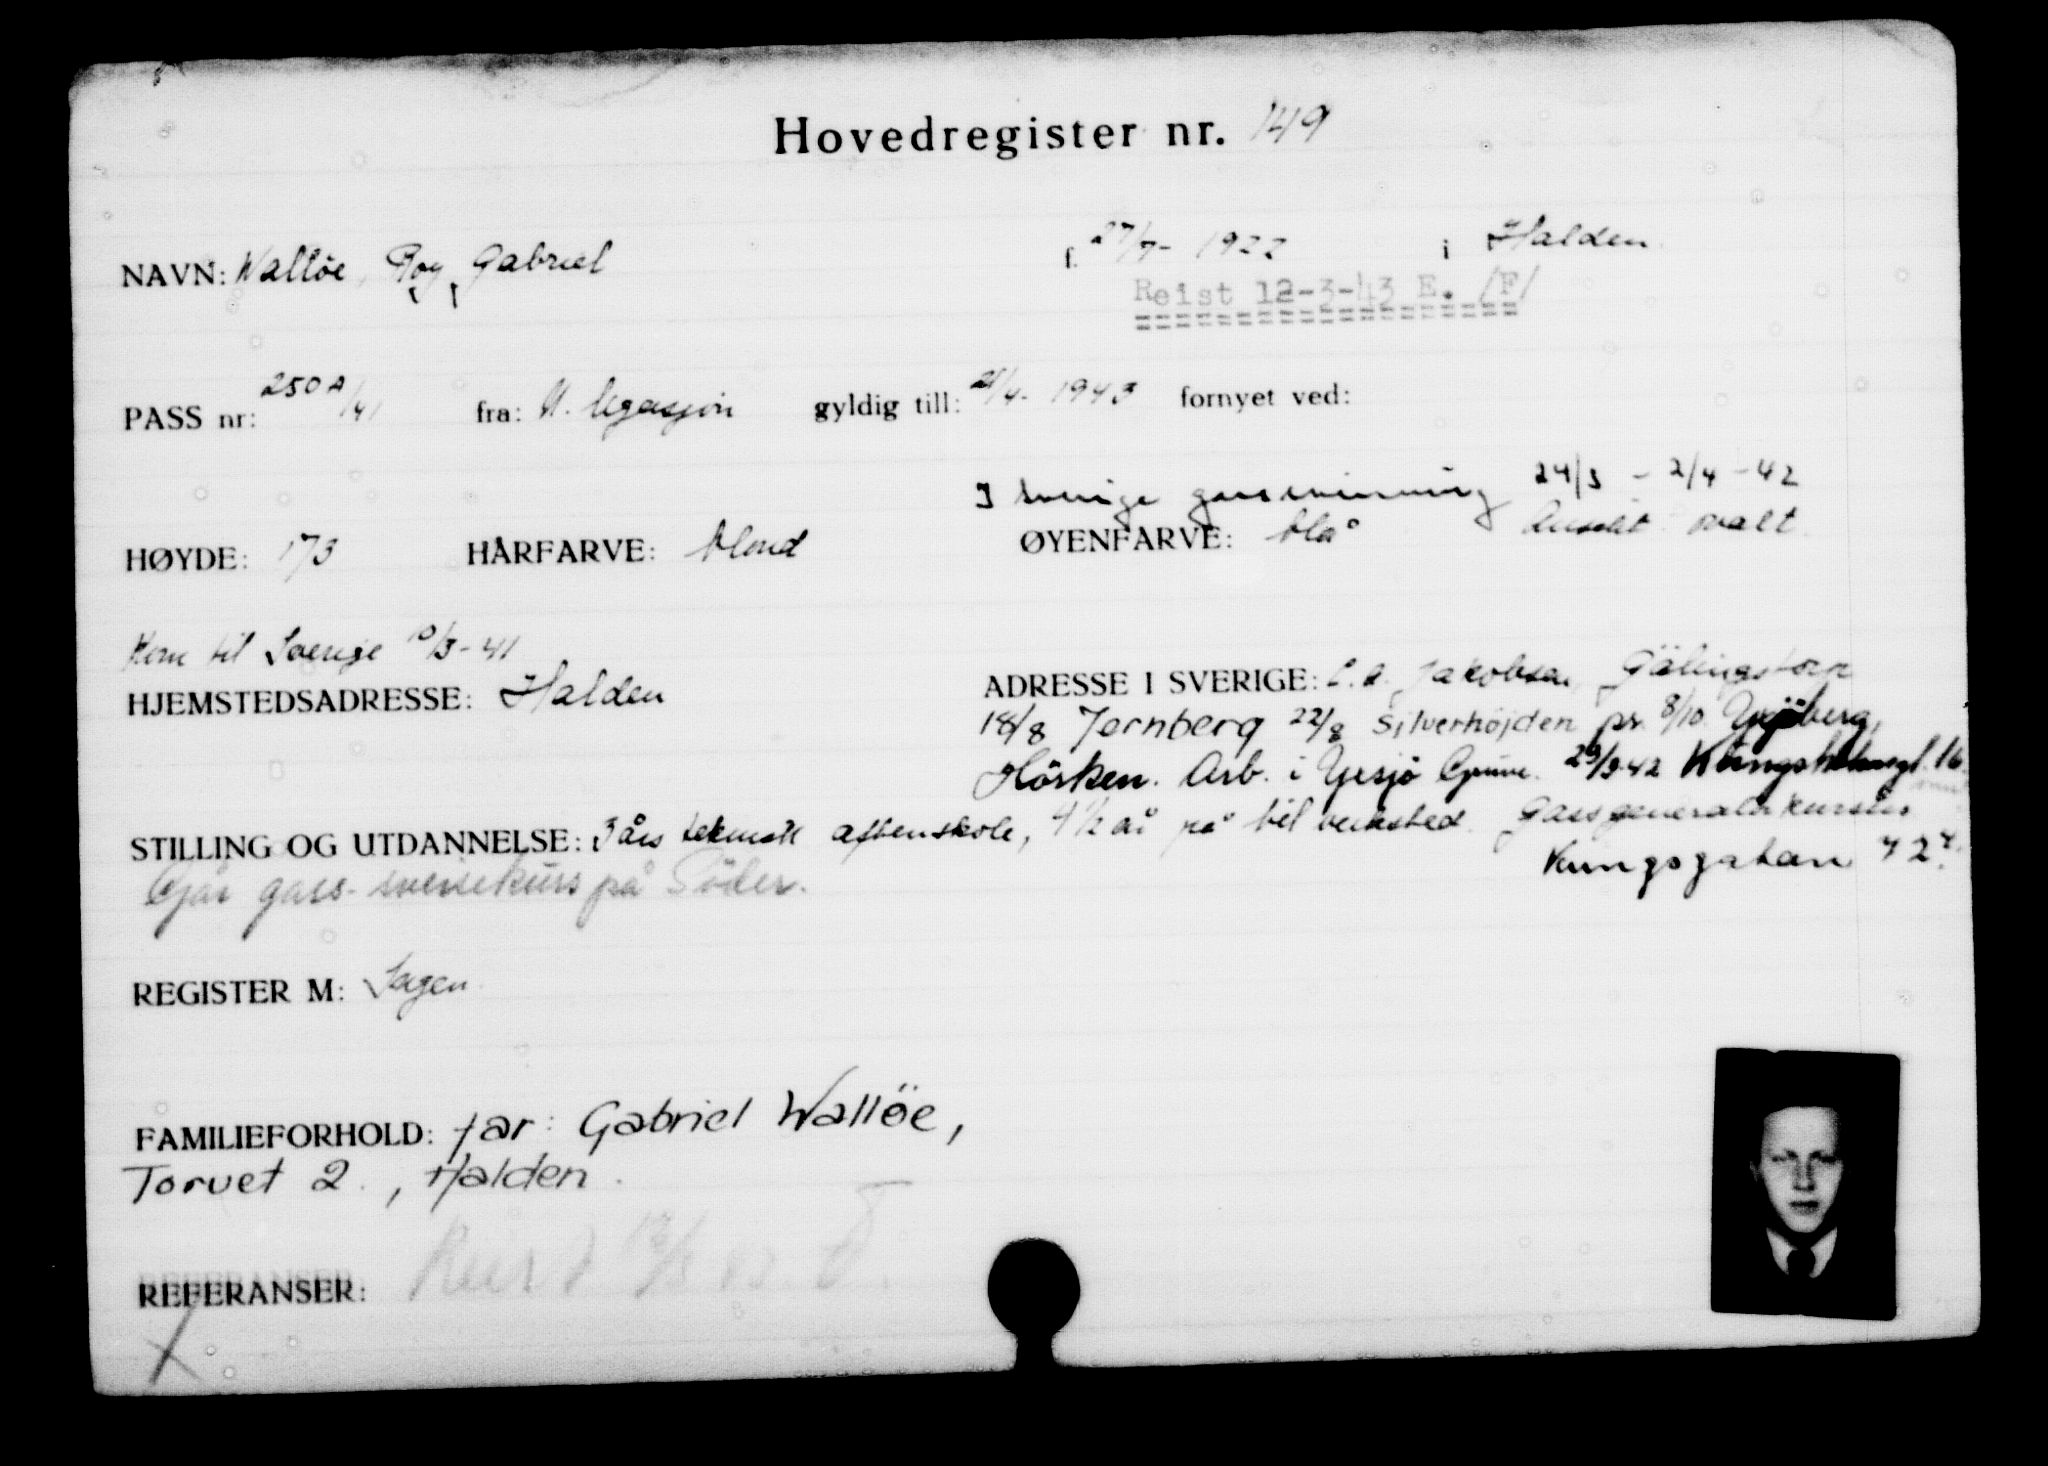 Hovedregister nr. 149
NAVN: Walløe, Roy Gabriel f. 27/7- 1922 i Halden
Reist 12-3-43 E. /F/
PASS nr: 250A/41 fra: N. legasjon gyldig till: 21/4- 1943 fornyet ved:
I Sverige 24/3 - 2/4 - 42
HØYDE: 173 HÅRFARVE: blond ØYENFARVE: blå Ansikt ovalt
Kom til Sverige 10/3-41
HJEMSTEDSADRESSE: Halden ADRESSE I SVERIGE: Jakobsen,
18/8 Jernberg 22/8 Silverhöjden pr. 8/10
Hörken. Arb. i Yxsjö Gruve. 29/9-42
STILLING OG UTDANNELSE: 3 års teknisk aftenskole, 4 1/2 år på bil verksted. Gassgeneratorkursus
Kungsgatan
Går gass-sveisekurs på Söder.
REGISTER M: Sagen
FAMILIEFORHOLD: far: Gabriel Walløe,
Torvet 2, Halden.
Reist
REFERANSER: